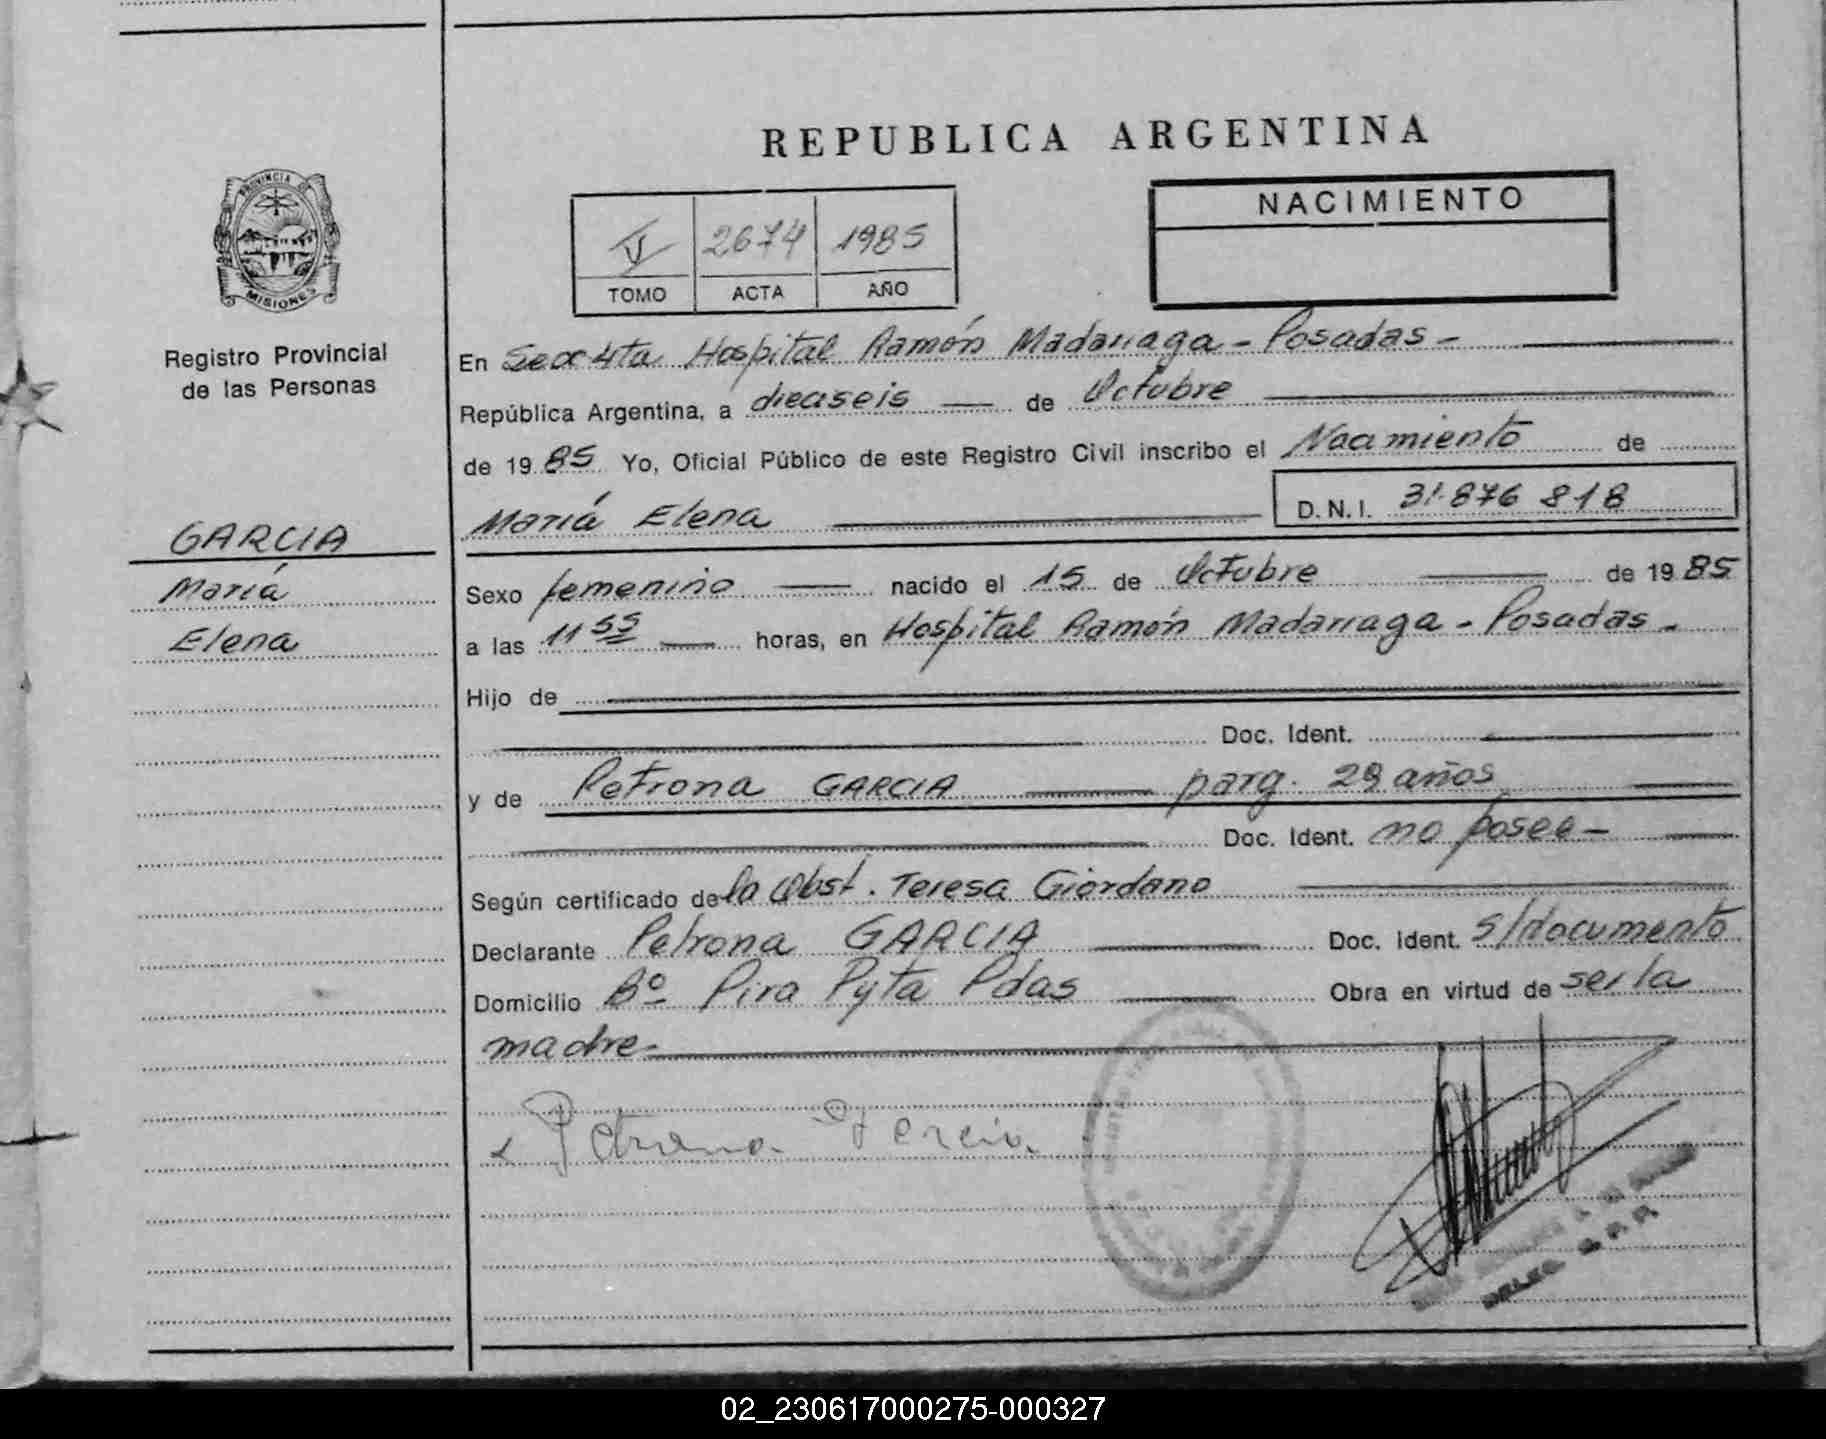 REPUBLICA ARGENTINA
PROVINCIA DE
MISIONES
Registro Provincial
de las Personas
V 2674 1985
TOMO ACTA AÑO
NACIMIENTO
En Secc 4ta Hospital Ramón Madariaga - Posadas -
República Argentina, a dieciseis — de Octubre
de 19 85 Yo, Oficial Público de este Registro Civil inscribo el Nacimiento de
María Elena
D.N.I. 31.876 818
GARCIA
María
Elena
Sexo femenino — nacido el 15 de Octubre — de 19 85
a las 11 55 — horas, en Hospital Ramón Madariaga - Posadas -
Hijo de
Doc. Ident.
y de Petrona GARCIA — parg. 29 años
Doc. Ident. no posee -
Según certificado de la Obst. Teresa Giordano
Declarante Petrona GARCIA — Doc. Ident. s/documento
Domicilio Bº Pira Pyta Pdas — Obra en virtud de ser la
madre -
Petrona Garcia
02_230617000275-000327